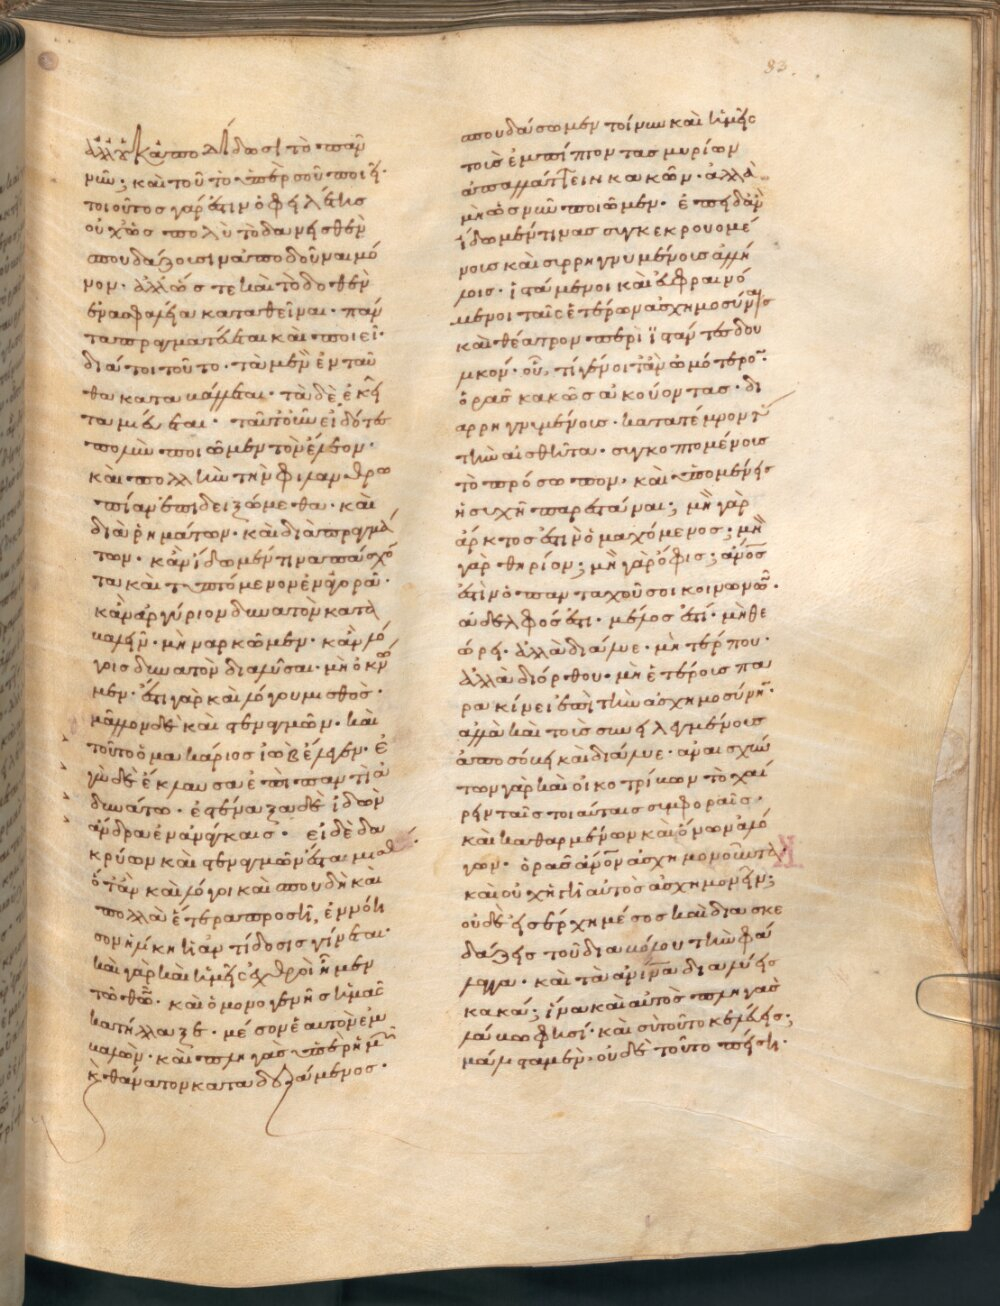 83.
ἀλλ' οὐκ ἀπολίδωσι τὸ παρ
νῦν; καὶ τοῦτο ὑπὲρ σοῦ ποιεῖ.
τοιοῦτος γάρ ἐστιν ὀφειλέτης
οὐχ ὡς πολὺ τὸ δανεισθὲν
σπουδάζοισιν ἀποδοῦναι μό
νον. ἀλλ' ὥστε καὶ τὸ δοθὲν
ἐν ἀσφαλεία καταθεῖναι. πάν
τα πραγματεύεται καὶ ποιεῖ.
διά τοι τοῦτο. τὰ μὲν ἐνταῦ
θα καταναλλεται. τὰ δὲ ἐκεῖ
ταμιεύεται. ταῦτ' οὖν εἰδότες
πολὺν ποιῶμεν τὸν ἔλεον.
καὶ πολλὴν τὴν φιλανθρω
πίαν ἐπιδειξώμεθα. καὶ
διὰ ῥημάτων. καὶ διὰ πραγμά
των. κἂν ἴδωμέν τινα πάσχο
τα καὶ τυπτόμενον ἐν ἀγορᾶ.
κἂν ἀργύριον δυνατὸν κατα
βαλεῖν. μὴ ναρκῶμεν. κἂν λό
γοις δυνατὸν διαλῦσαι. μὴ ὀκνῶ
μεν. ἔστι γὰρ καὶ λόγου μισθός.
μᾶλλον δὲ καὶ στεναγμῶν. καὶ
τοῦτο ὁ μακάριος ἰὼβ ἔλεγεν. ἐ
γὼ δὲ ἔκλαυσα ἐπὶ παντὶ ἀ
δυνάτω. ἐστέναξα δὲ ἰδὼν
ἄνδρα ἐν ἀνάγκαις. εἰ δὲ δα
κρύων καὶ στεναγμῶν ἔσται μισθός
ὅταν καὶ λόγοι καὶ σπουδὴ καὶ
πολλὰ ἕτερα προσῆ, ἐννόη
σον ἡλίκη ἡ ἀντίδοσις γίνεται.
καὶ γὰρ καὶ ἡμεῖς ἐχθροὶ ἦμεν
τῶ θῶ. καὶ ὁ μονογενὴς ἡμᾶς
κατήλλαξε. μέσον ἑαυτὸν ἐμ
βαλὼν. καὶ πληγὰς ὑπὲρ ἡμῶν
κ θάνατον καταδεξάμενος.
σπουδάσωμεν τοίνυν καὶ ἡμεῖς
τοὺς ἐμπίπτοντας μυρίων
ἀπαλλάττειν κακῶν. ἀλλὰ
μὴ ὡς νῦν ποιῶμεν. ἐπειδὰν
ἴδωμέν τινας συγκεκρουομέ
νους καὶ συρρηγνυμένους ἀλλή
λοις. ἱστάμενοι καὶ εὐφραινό
μενοι ταῖς ἑτέρων ἀσχημοσύναις
καὶ θέατρον περιϊστάντες δου
μκόν. οὗ, τί γένοιτ' ἂν ὠμότερον·
ὁρᾶς κακῶς ἀκούοντας. δι
αρρηγνυμένους. καταπέμροντ
τὴν αἰσθῆτα. συγκοπτομένους
τὸ πρόσωπον. καὶ ὑπομένεις
ἡσυχῆ παρεστάναι; μὴ γὰρ
ἄρκτος ἐστὶν ὁ μαχόμενος; μὴ
γὰρ θηρίον; μὴ γὰρ ὄφις; ἄνος
ἐστὶν ὁ πανταχοῦ σοι κοινωνῶν.
ἀδελφός ἐστι. μέλος ἐστί. μὴ θε
ώρει. ἀλλὰ διάλυε. μὴ τέρπου.
ἀλλὰ διόρθου. μὴ ἑτέροις πα
ρακίνει ἐπὶ τὴν ἀσχημοσύνην.
ἀλλὰ καὶ τοὺς συνειλεγμένους
ἀποσόβει καὶ διάλυε. ἀναισχύν
των γὰρ καὶ οἰκοτρίβων τὸ χαί
ρειν ταῖς τοιαύταις συμφοραῖς.
καὶ καθαρμένων καὶ ὄνων ἀλό
γων. ὁρᾶς ἄνον ἀσχημονοῦντα
καὶ οὐχ ἡγῆ αὐτὸς ἀσχημονεῖν;
οὐδὲ εἰσέρχη μέσος καὶ διασκε
δάζεις τοῦ διαβόλου τὴν φά
λαγγα. καὶ τὰ ἀνινα διαλύεις
κακά; ἵνα καὶ αὐτὸς πληγὰς
λάβω φησί. καὶ σὺ τοῦτο κελεύεις;
μάλιστα μὲν. οὐδὲ τοῦτο πείση.